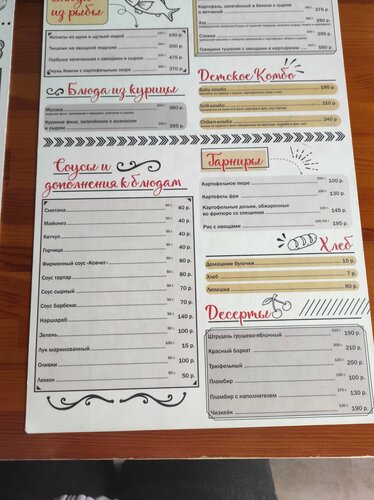 из рыбы
Котлеты из щуки и щучьей икрой 190 р.
Тилапия на овощной подушке 350 р.
Горбуша запеченная с овощами и сыром 475 р.
с картофельным пюре 370 р.
Картофель, запечённый в беконе с сыром
и зеленью 375 р.
Азу 390 р.
Стожки 395 р.
Говядина тушеная с овощами и картофелем 550 р.
Блюда из курицы
Мусака 360 р.
Куриное филе, запечённое с ананасом
и сыром 395 р.
Детское Комбо
Baby-комбо 195 р.
Grill-комбо 210 р.
Chiken-комбо 240 р.
Соусы и
дополнения к блюдам
Сметана 40 р.
Майонез 40 р.
Кетчуп 40 р.
Горчица 40 р.
Фирменный соус «Ковчег» 80 р.
Соус тартар 80 р.
Соус сырный 70 р.
Соус барбекю 70 р.
Наршараб 140 р.
Зелень 100 р.
Лук маринованный 15 р.
Оливки 100 р.
Лимон 50 р.
Гарниры
Картофельное пюре 100 р.
Картофель фри 130 р.
Картофельные дольки, обжаренные
во фритюре со специями 145 р.
Рис с овощами 195 р.
Хлеб
Домашние булочки 15 р.
Хлеб 7 р.
Лепешка 60 р.
Десерты
Штрудель грушево-яблочный 190 р.
Красный бархат 210 р.
Трюфельный 250 р.
Пломбир 100 р.
Пломбир с наполнителем 130 р.
Чизкейк 190 р.